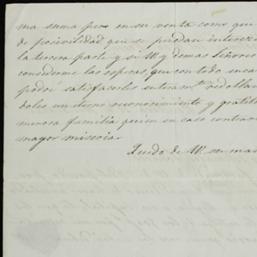 ma suma pero en su venta como que
de posivilidad que se puedan interesar
la tercera parte y si V. y demas Señores
consederme las esperas que con todo encar
poder satisfacerles entéram
doles un eterno reconocimiento y gratitu
merosa familia quien en caso contrari
mayor miseria
Quedo de V. su mas